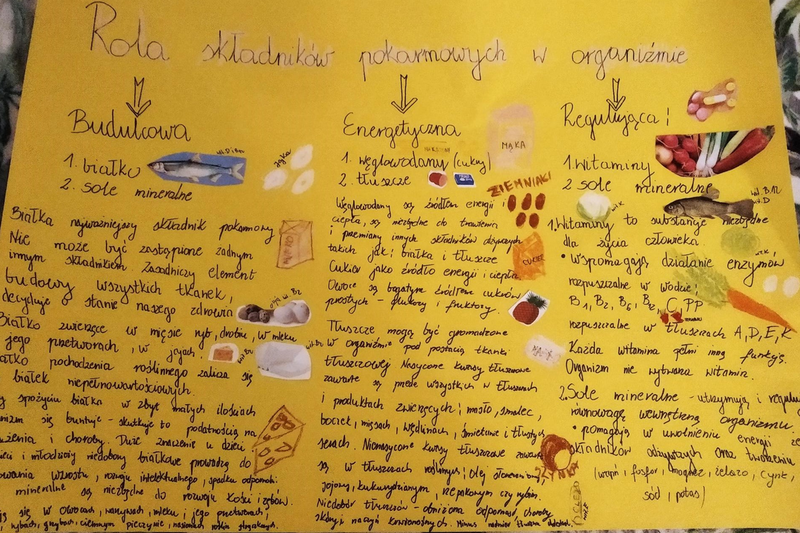 Rola składników pokarmowych w organiźmie
Budulcowa
1. białko
2. sole mineralne
jajka
Białka najważniejszy składnik pokarmowy
Nic może być zastąpione żadnym
innym składnikiem Zasadniczy element
budowy wszystkich tkanek,
decyduje o stanie naszego zdrowia
Białko zwierzęce w mięsie ryb, drobiu, w mleku
jego przetworach, w jajach.
białko pochodzenia roślinnego zalicza się
białek niepełnowartościowych.
spożyciu białka w zbyt małych ilościach
się buntuje - skutkuje to podatnością na
i choroby. Duże znaczenie u dzieci
i młodzieży niedobory białkowe prowadzą do
wzrostu, rozwoju intelektualnego, spadku odporności
mineralne są niezbędne do rozwoju kości i zębów.
się w owocach, warzywach, mleku i jego przetworach,
rybach, grzybach, ciemnym pieczywie, nasionach roślin
Energetyczna
MĄKA
1. węglowodany (cukry)
2. tłuszcze
ZIEMNIAKI
Węglowodany są źródłem energii i
ciepła, są niezbędne do trawienia
i przemiany innych składników odżywczych
takich jak: białka i tłuszcze
Cukier jako źródło energii i ciepła
CUKIER
Owoce są bogatym źródłem cukrów
prostych - glukozy i fruktozy.
Tłuszcze mogą być gromadzone
w organiźmie pod postacią tkanki
tłuszczowej Nasycone kwasy tłuszczowe
zawarte są przede wszystkich w tłuszczach
i produktach zwierzęcych: masło, smalec,
boczek, mięsach, wędlinach, śmietanie i tłustych
serach. Nienasycone kwasy tłuszczowe zawarte
SZYNKA
są w tłuszczach roślinnych: Olej słonecznikowy,
sojowy, kukurydzianym, rzepakowym czy rybim.
Niedobór tłuszczów - obniżona odporność, choroby
skóry i naczyń krwionośnych.
Regulująca:
1. witaminy
2. sole mineralne
wit. B12
wit. D
1. Witaminy to substancje niezbędne
dla życia człowieka
• wspomagają działanie enzymów
rozpuszalne w wodzie:
B1, B2, B6, B12, C, PP
rozpuszalne w tłuszczach A, D, E, K
Każda witamina pełni inną funkcję.
Organizm nie wytwarza witamin.
2. Sole mineralne - utrzymują i regulują
równowagę wewnętrzną organizmu.
• pomagają w uwolnieniu energii ze
składników odżywczych oraz tworzeniu
(wapń, fosfor, magnez, żelazo, cynk,
sód, potas)